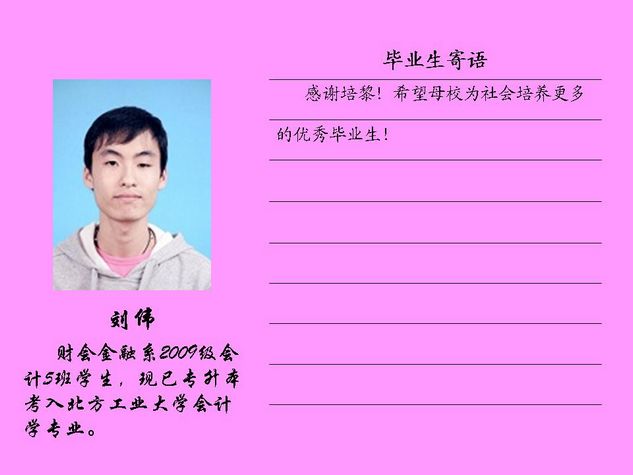 毕业生寄语
感谢培黎！希望母校为社会培养更多
的优秀毕业生！
刘伟
财会金融系2009级会
计5班学生，现已专升本
考入北方工业大学会计
学专业。